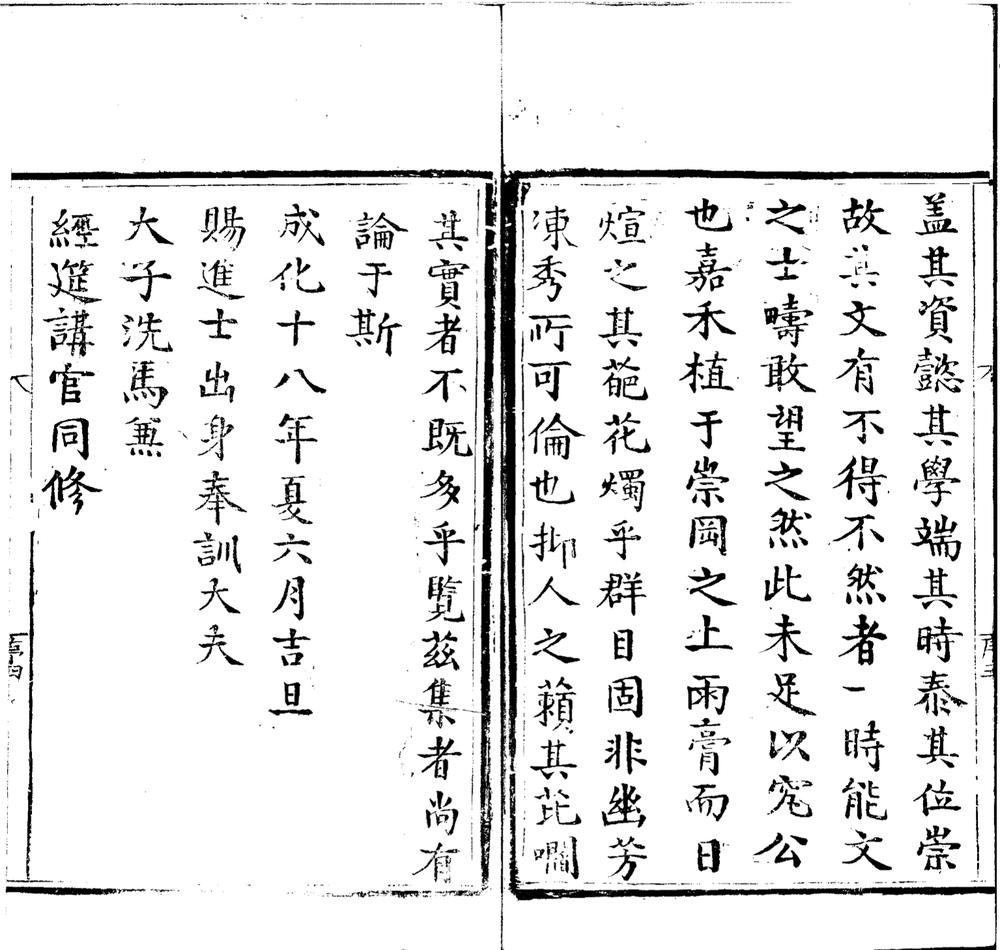 盖其資懿其學端其時泰其位崇
故其文有不得不然者一時能文
之士疇敢望之然此未足以究公
也嘉禾植于崇岡之上雨膏而日
煊之其葩花燭乎群目固非幽芳
凍秀所可倫也抑人之藾其芘嚪
其實者不既多乎覽茲集者尚有
論于斯
成化十八年夏六月吉旦
賜進士出身奉訓大夫
大子洗馬兼
經筵講官同修
序四